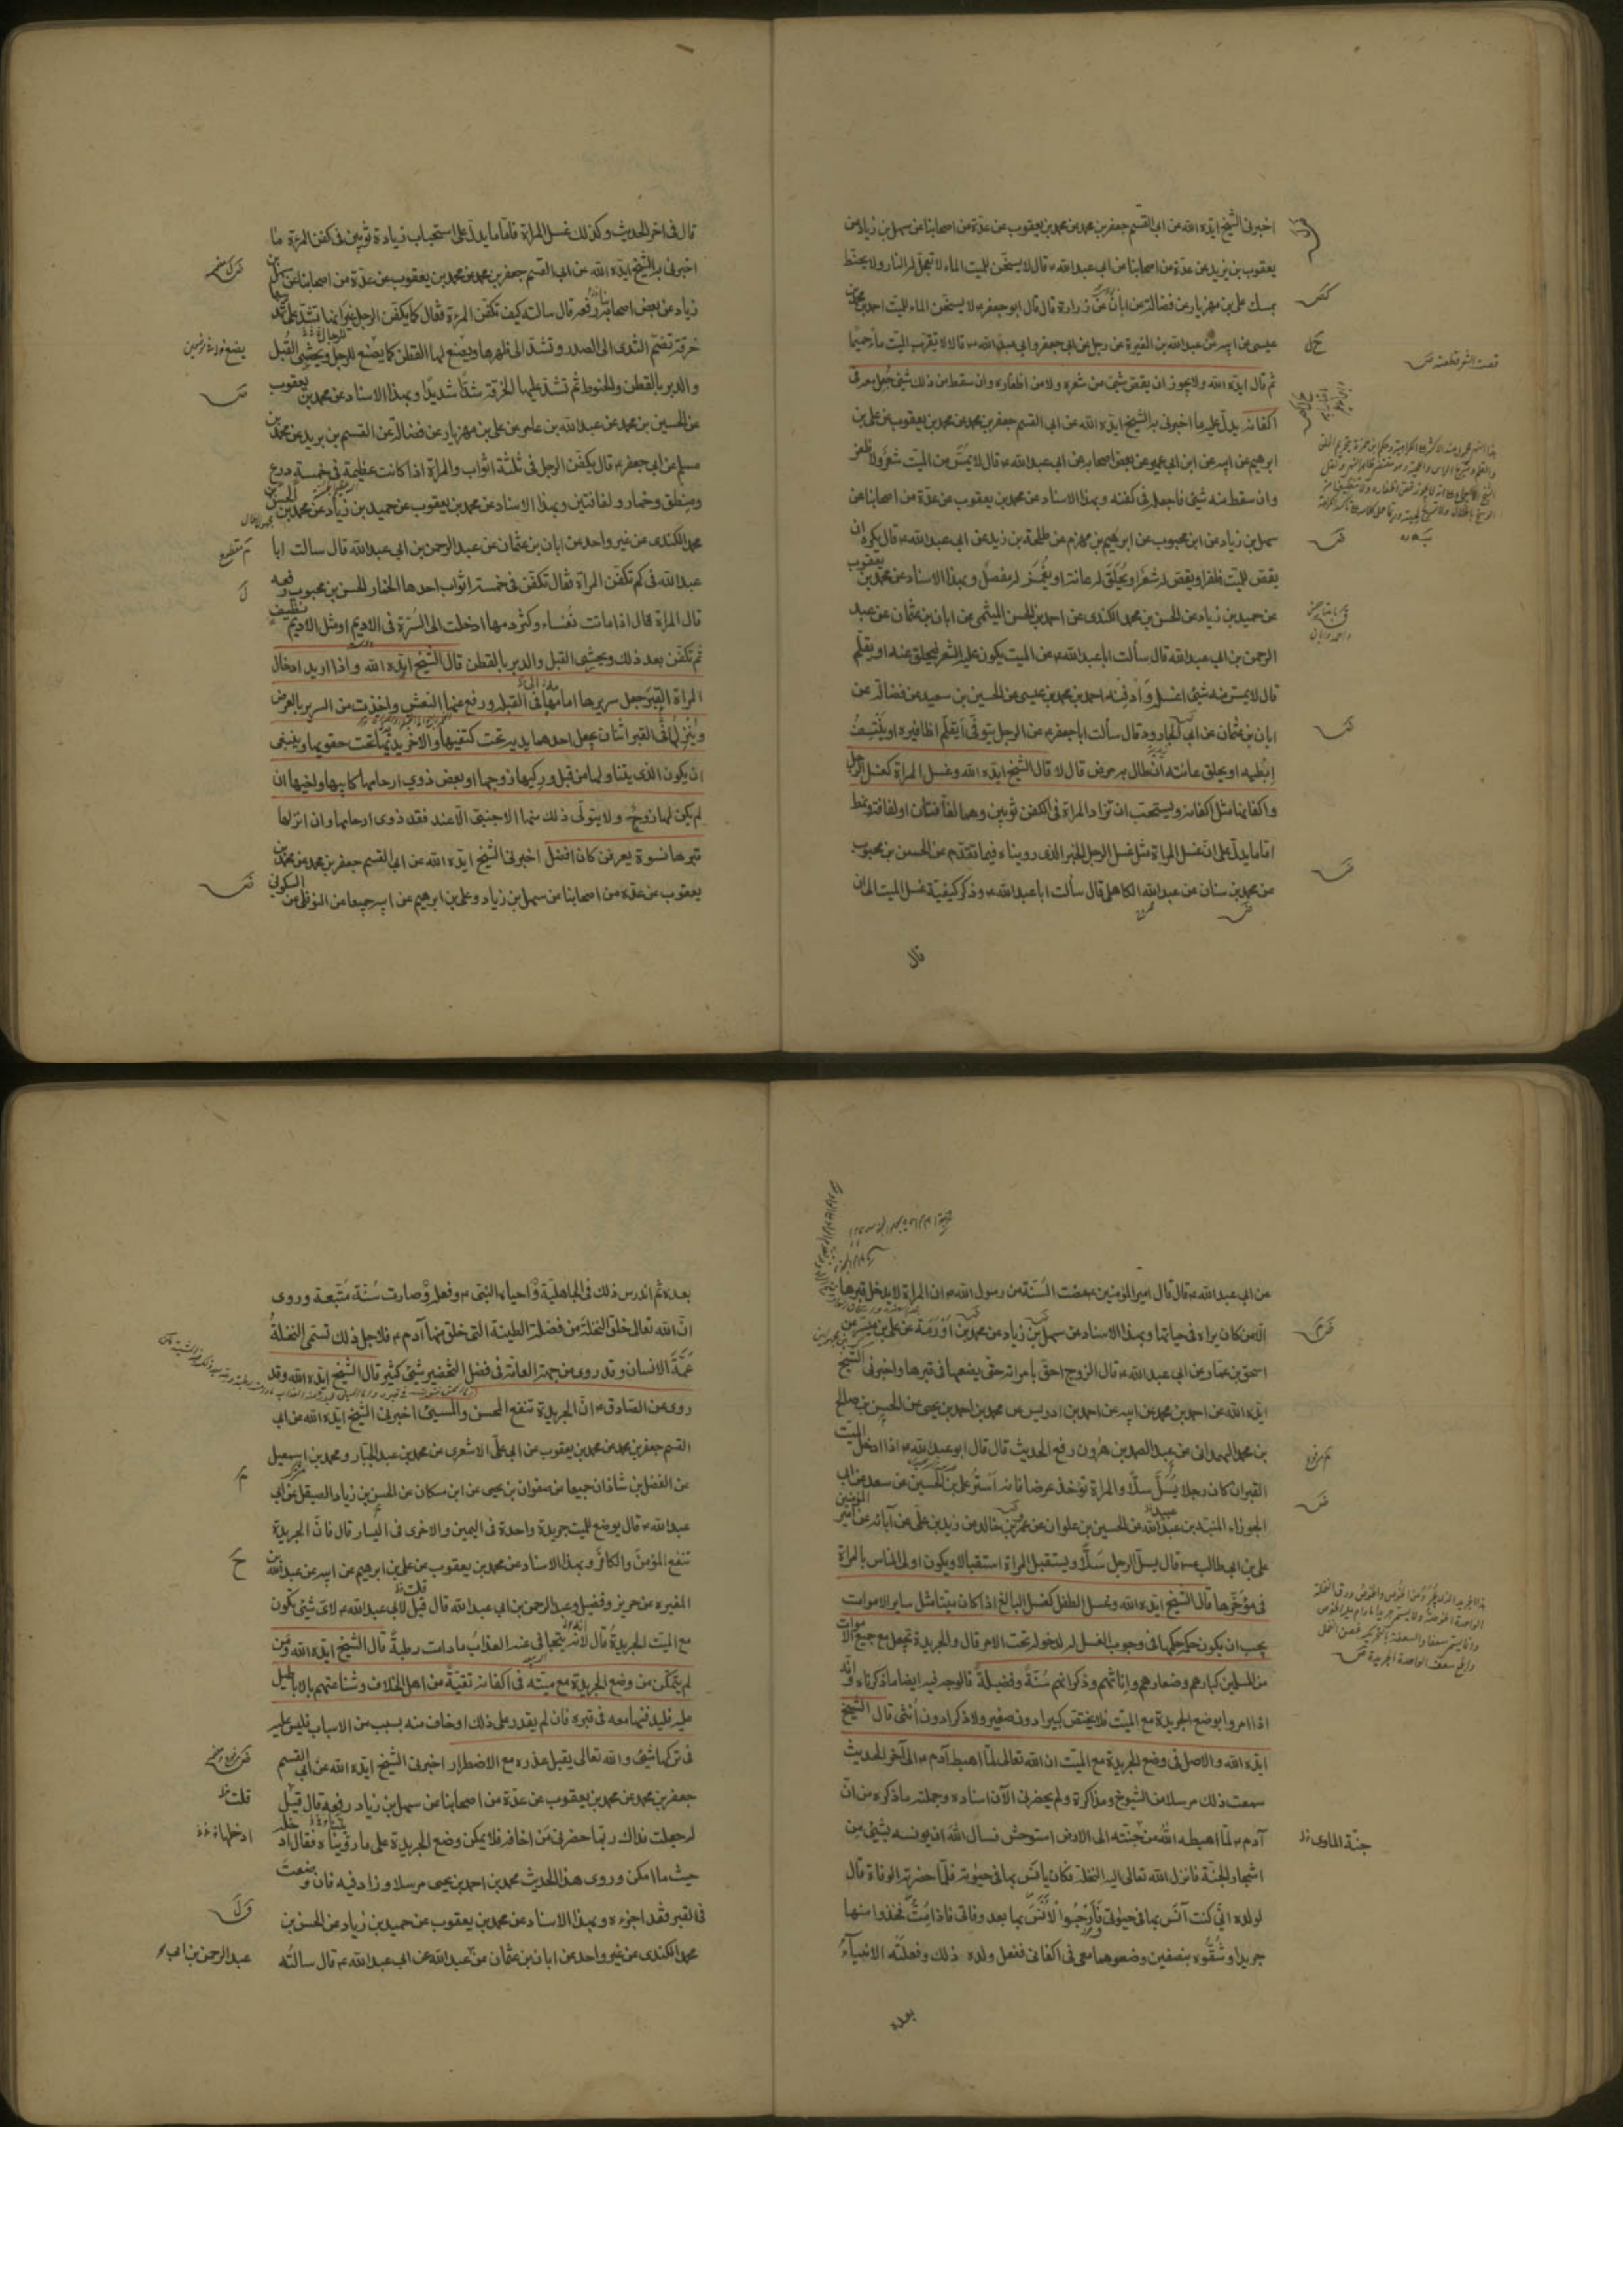 اخبرنى الشيخ ايده الله عن ابى القسم جعفر بن محمد عن محمد بن يعقوب عن عدة من اصحابنا عن سهل بن زياد عن
يعقوب بن يزيد عن عدة من اصحابنا عن ابى عبدالله ع قال لا يسخن للميت الماء لا تعجل له النار ولا يحنط
بمسك على بن مهزيار عن فضالة عن ابان عن زرارة قال قال ابو جعفر ع لا يسخن الماء للميت احمد بن محمد بن
عيسى عن ابيه عن عبدالله بن المغيرة عن رجل عن ابى جعفر وابى عبدالله ع قالا لا تقرب الميت ماء حميما
ثم قال ايده الله ولا يجوز ان يقص شئ من شعره ولا من اظفاره وان سقط من ذلك شئ جعل معه فى
اكفانه يدل عليه ما اخبرنى به الشيخ ايده الله عن ابى القسم جعفر بن محمد عن محمد بن يعقوب عن على بن
ابرهيم عن ابيه عن ابن ابى عمير عن بعض اصحابه عن ابى عبدالله ع قال لا يمس من الميت شعر ولا ظفر
وان سقط منه شئ فاجعله فى كفنه وبهذا الاسناد عن محمد بن يعقوب عن عدة من اصحابنا عن
سهل بن زياد عن ابن محبوب عن ابرهيم بن مهزم عن طلحة بن زيد عن ابى عبدالله ع قال يكره ان
يقص للميت ظفر او يقص له شعر او يحلق له عانة او يغمز له مفصل وبهذا الاسناد عن محمد بن يعقوب
عن حميد بن زياد عن الحسن بن محمد الكندى عن احمد بن الحسن الميثمى عن ابان بن عثمان عن عبد
الرحمن بن ابى عبدالله قال سألت ابا عبدالله ع عن الميت يكون عليه الشعر فيحلق عنه او يقلم
قال لا يمس منه شئ اغسله وادفنه احمد بن محمد بن عيسى عن الحسين بن سعيد عن فضالة عن
ابان بن عثمان عن ابى الجارود قال سألت ابا جعفر ع عن الرجل يتوفى أيقلم اظافيره او ينتف
ابطيه او يحلق عانته ان طال به مرض قال لا قال الشيخ ايده الله وغسل المراة كغسل الرجل
واكفانها مثل اكفانه ويستحب ان تزاد المراة فى الكفن ثوبين وهما لفافتان او لفافة ونمط
اما ما يدل على ان غسل المراة مثل غسل الرجل الخبر الذى رويناه فيما تقدم عن الحسن بن محبوب
عن محمد بن سنان عن عبدالله الكاهلى قال سألت ابا عبدالله ع وذكر كيفية غسل الميت الى ان
قال
قال فى اخر الحديث وكذلك غسل المراة فاما ما يدل على استحباب زيادة ثوبين فى كفن المرءة ما
اخبرنى به الشيخ ايده الله عن ابى القسم جعفر بن محمد عن محمد بن يعقوب عن عدة من اصحابنا عن سهل بن
زياد عن بعض اصحابنا رفعه قال سالته كيف تكفن المرءة فقال كما يكفن الرجل غير انها تشد على ثديها
خرقة تضم الثدى الى الصدر وتشد الى ظهرها ويصنع لها القطن كما يصنع للرجل ويحشى القبل
والدبر بالقطن والحنوط ثم تشد عليها الخرقة شدا شديدا وبهذا الاسناد عن محمد بن يعقوب
عن الحسين بن محمد عن عبدالله بن عامر عن على بن مهزيار عن فضالة عن القسم بن بريد عن محمد بن
مسلم عن ابى جعفر ع قال يكفن الرجل فى ثلثة اثواب والمراة اذا كانت عظيمة فى خمسة درع
ومنطق وخمار ولفافتين وبهذا الاسناد عن محمد بن يعقوب عن حميد بن زياد عن الحسن بن
محمد الكندى عن غير واحد عن ابان بن عثمان عن عبدالرحمن بن ابى عبدالله قال سالت ابا
عبدالله فى كم تكفن المراة فقال تكفن فى خمسة اثواب احدها الخمار الحسن بن محبوب رفعه
قال المراة قال اذا ماتت نفساء وكثر دمها ادخلت الى السرة فى الاديم او مثل الاديم نظيف
ثم تكفن بعد ذلك ويحشى القبل والدبر بالقطن قال الشيخ ايده الله واذا اريد ادخال
المراة القبر جعل سريرها امامها فى القبلة ورفع عنها النعش واخذت من السرير بالعرض
وينزلها فى القبر اثنان يجعل احدهما يديه تحت كتفيها والاخر يديه تحت حقويها وينبغى
ان يكون الذى يتناولها من قبل وركيها زوجها او بعض ذوى ارحامها كابيها واخيها ان
لم يكن لها زوج ولا يتولى ذلك منها الاجنبى الا عند فقد ذوى ارحامها وان انزلها
قبرها نسوة يعرفن كان افضل اخبرنى الشيخ ايده الله عن ابى القسم جعفر بن محمد عن محمد بن
يعقوب عن عدة من اصحابنا عن سهل بن زياد وعلى بن ابرهيم عن ابيه جميعا عن النوفلى عن السكونى
عن ابى عبدالله ع قال قال امير المؤمنين ع مضت السنة من رسول الله ص ان المراة لا يدخل قبرها
الا من كان يراه فى حياتها وبهذا الاسناد عن سهل بن زياد عن محمد بن اورمة عن على بن ميسر عن
اسحق بن عمار عن ابى عبدالله ع قال الزوج احق بامراته حتى يضعها فى قبرها واخبرنى الشيخ
ايده الله عن احمد بن محمد عن ابيه عن احمد بن ادريس عن محمد بن احمد بن يحيى عن الحسين بن صالح
بن محمد الهمدانى عن عبد الصمد بن هرون رفع الحديث قال قال ابو عبدالله ع اذا ادخل الميت
القبر ان كان رجلا يسل سلا والمراة تؤخذ عرضا فانه استر على بن الحسين عن سعد عن ابى
الجوزاء المنبه بن عبدالله عن الحسين بن علوان عن عمرو بن خالد عن زيد بن على عن آبائه عن امير المؤمنين
على بن ابى طالب ع قال يسل الرجل سلا ويستقبل المراة استقبالا ويكون اولى الناس بالمراة
فى مؤخرها قال الشيخ ايده الله وغسل الطفل كغسل البالغ اذا كان ميتا مثل ساير الاموات
يجب ان يكون حكمه حكمها فى وجوب الغسل له لدخوله تحت الامر قال والجريدة تجعل مع جميع الاموات
من المسلمين كبارهم وصغارهم واناثهم وذكرانهم سنة وفضيلة فالوجه فيه ايضا ما ذكرناه وانه
اذا امروا بوضع الجريدة مع الميت فلا يختص كبيرا دون صغير ولا ذكرا دون انثى قال الشيخ
ايده الله والاصل فى وضع الجريدة مع الميت ان الله تعالى لما اهبط آدم ع الى آخر الحديث
سمعت ذلك مرسلا من الشيوخ ومذاكرة ولم يحضرنى الآن اسناده وجملته ما ذكره من ان
آدم ع لما اهبطه الله من جنته الى الارض استوحش فسال الله ان يونسه بشئ من
جنة الماوى
اشجار الجنة فانزل الله تعالى اليه النخلة فكان يأنس بها فى حيوته فلما حضرته الوفاة قال
لولده انى كنت آنس بها فى حيوتى فارجوا الانس بها بعد وفاتى فاذا مت فخذوا منها
جريدا وشقوه بنصفين وضعوهما معى فى اكفانى ففعل ولده ذلك وفعلته الانبياء
بعده
بعده ثم اندرس ذلك فى الجاهلية فاحياه النبى ص وفعله وصارت سنة متبعة وروى
ان الله تعالى خلق النخلة من فضلة الطينة التى خلق منها آدم ع فلاجل ذلك تسمى النخلة
عمة الانسان وقد روى من جهة العامة فى فضل التخضير شئ كثير قال الشيخ ايده الله وقد
روى عن الصادق ع ان الجريدة تنفع المحسن والمسيئ اخبرنى الشيخ ايده الله عن ابى
القسم جعفر بن محمد عن محمد بن يعقوب عن ابى على الاشعرى عن محمد بن عبد الجبار ومحمد بن اسمعيل
عن الفضل بن شاذان جميعا عن صفوان بن يحيى عن ابن مسكان عن الحسن بن زياد الصيقل عن ابى
عبدالله ع قال يوضع للميت جريدة واحدة فى اليمين والاخرى فى اليسار قال فان الجريدة
تنفع المؤمن والكافر وبهذا الاسناد عن محمد بن يعقوب عن على بن ابرهيم عن ابيه عن عبدالله بن
المغيرة عن حريز وفضيل وعبد الرحمن بن ابى عبدالله قال قيل لابى عبدالله ع لاى شئ تكون
مع الميت الجريدة قال لانه يتجافى عنه العذاب ما دامت رطبة قال الشيخ ايده الله ومن
لم يتمكن من وضع الجريدة مع ميته فى اكفانه تقية من اهل الخلاف وشناعتهم بالاباطيل
عليه فليدفنها معه فى قبره فان لم يقدر على ذلك او خاف منه بسبب من الاسباب فليس عليه
فى تركها شئ والله تعالى يقبل عذره مع الاضطرار اخبرنى الشيخ ايده الله عن ابى القسم
جعفر بن محمد عن محمد بن يعقوب عن عدة من اصحابنا عن سهل بن زياد رفعه قال قيل
له جعلت فداك ربما حضرنى من اخافه فلا يمكن وضع الجريدة على ما رويناه فقال ادخلها
حيث ما امكن وروى هذا الحديث محمد بن احمد بن يحيى مرسلا وزاد فيه فان وضعت
فى القبر فقد اجزءه وبهذا الاسناد عن محمد بن يعقوب عن حميد بن زياد عن الحسن بن
محمد الكندى عن غير واحد عن ابان بن عثمان عن عبدالله عن ابى عبدالله ع قال سالته